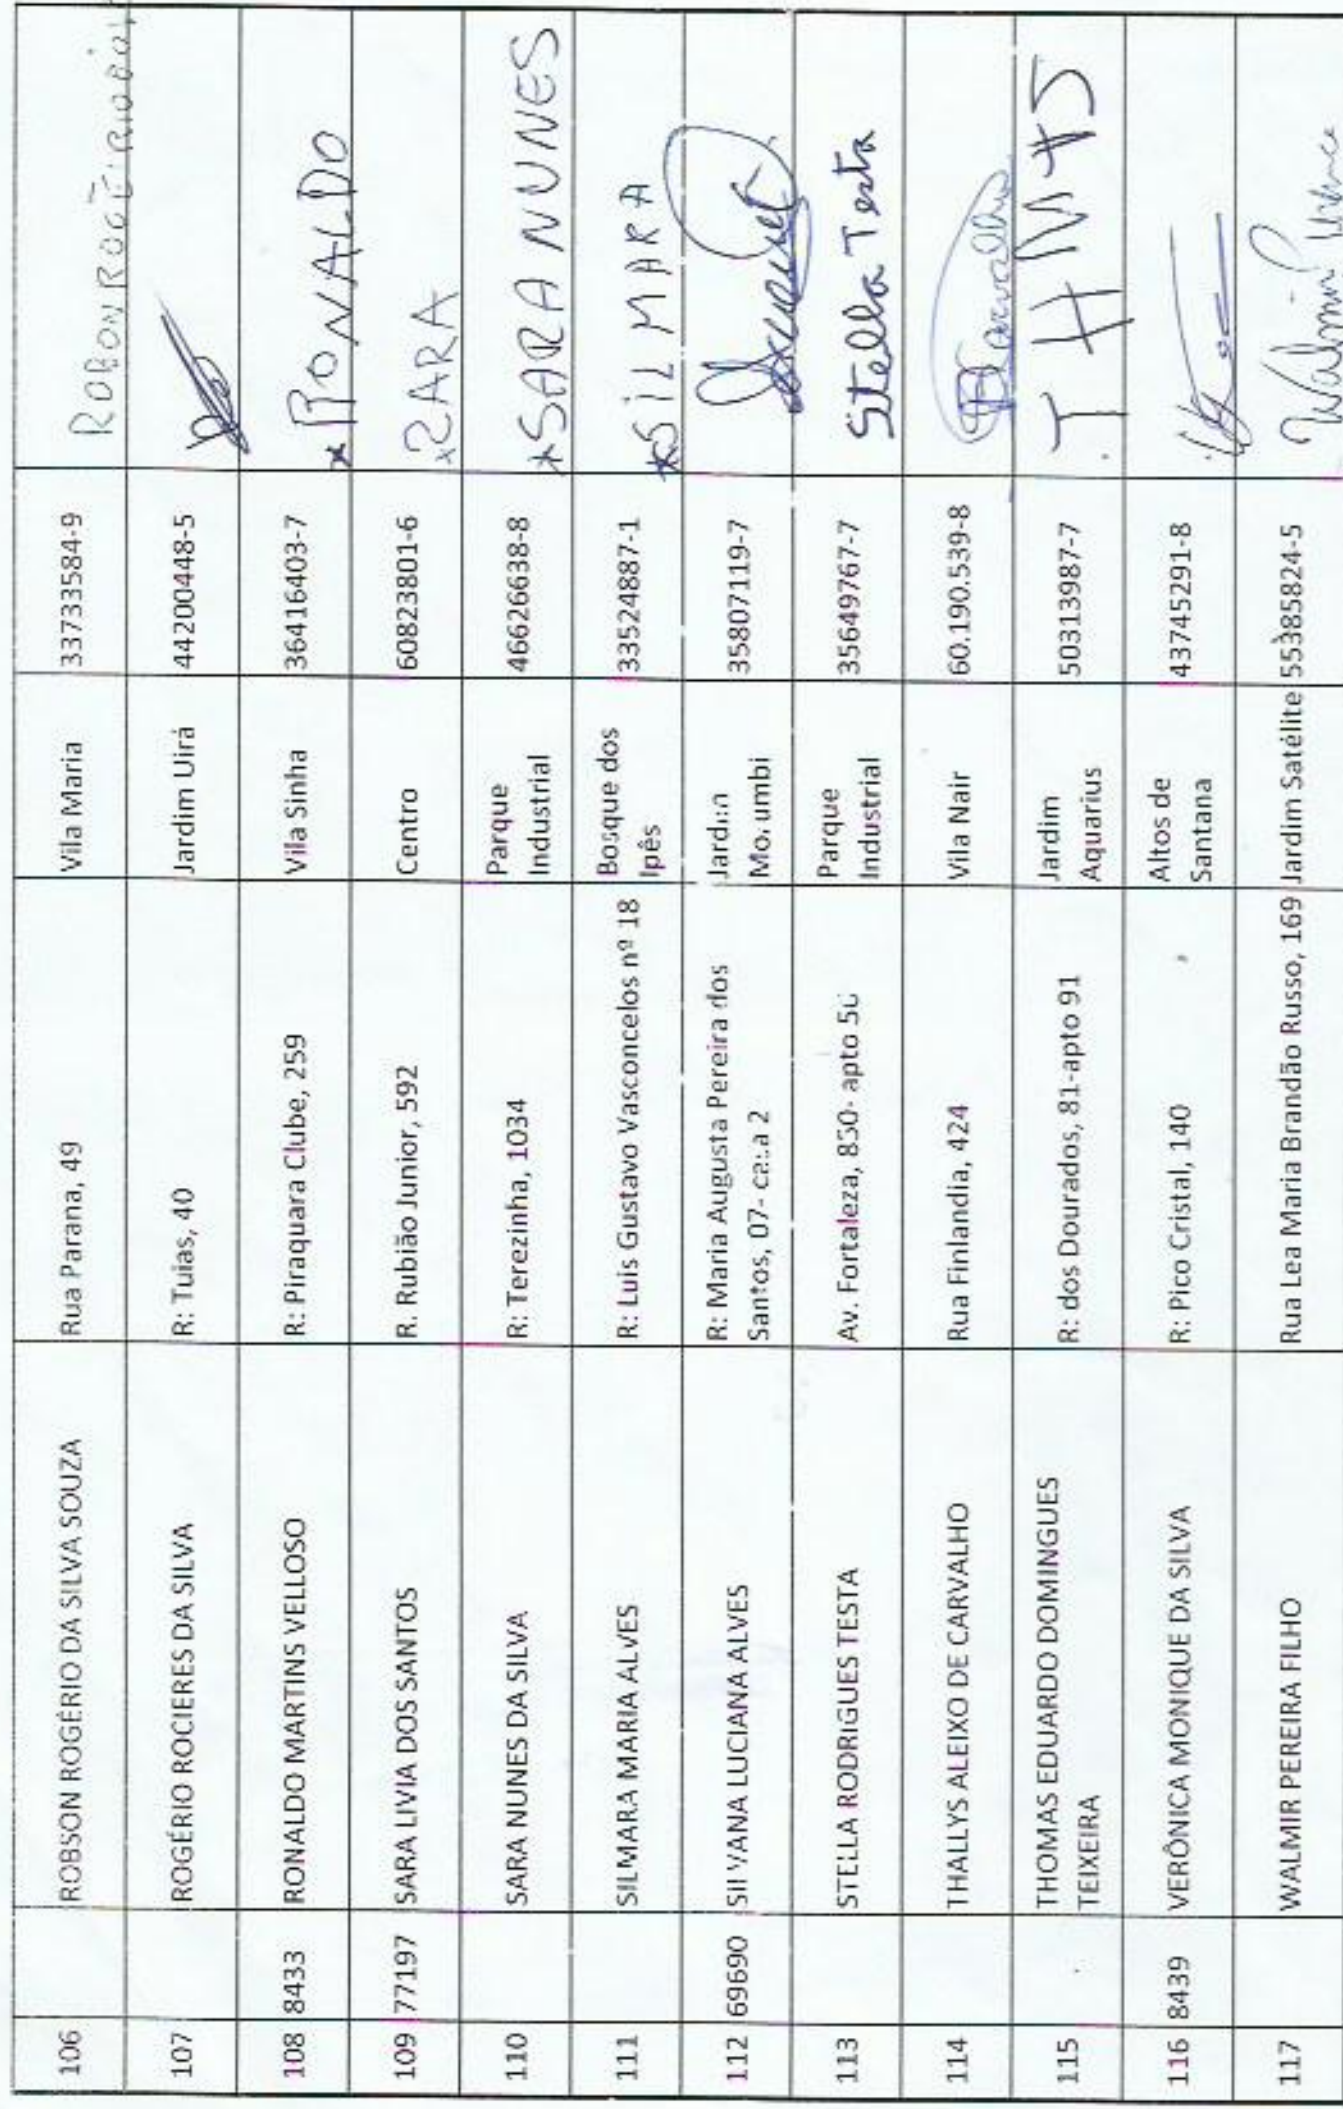 106 ROBSON ROGÉRIO DA SILVA SOUZA Rua Parana, 49 Vila Maria 33733584-9
107 ROGÉRIO ROCIERES DA SILVA R: Tuias, 40 Jardim Uirá 44200448-5
108 8433 RONALDO MARTINS VELLOSO R: Piraquara Clube, 259 Vila Sinha 36416403-7 RONALDO
109 77197 SARA LIVIA DOS SANTOS R. Rubião Junior, 592 Centro 60823801-6 SARA
110 SARA NUNES DA SILVA R: Terezinha, 1034 Parque
Industrial 46626638-8 SARA NUNES
111 SILMARA MARIA ALVES R: Luis Gustavo Vasconcelos nº 18 Bosque dos
Ipês 33524887-1 SILMARA
112 69690 SILVANA LUCIANA ALVES R: Maria Augusta Pereira dos Jardim
Santos, 07- casa 2 Morumbi 35807119-7
113 STELLA RODRIGUES TESTA Av. Fortaleza, 850- apto Parque
Industrial 35649767-7 Stella Testa
114 THALLYS ALEIXO DE CARVALHO Rua Finlandia, 424 Vila Nair 60.190.539-8
115 THOMAS EDUARDO DOMINGUES R: dos Dourados, 81-apto 91 Jardim
TEIXEIRA Aquarius 50313987-7
116 8439 VERÔNICA MONIQUE DA SILVA R: Pico Cristal, 140 Altos de
Santana 43745291-8
117 WALMIR PEREIRA FILHO Rua Lea Maria Brandão Russo, 169 Jardim Satélite 55385824-5 Walmir